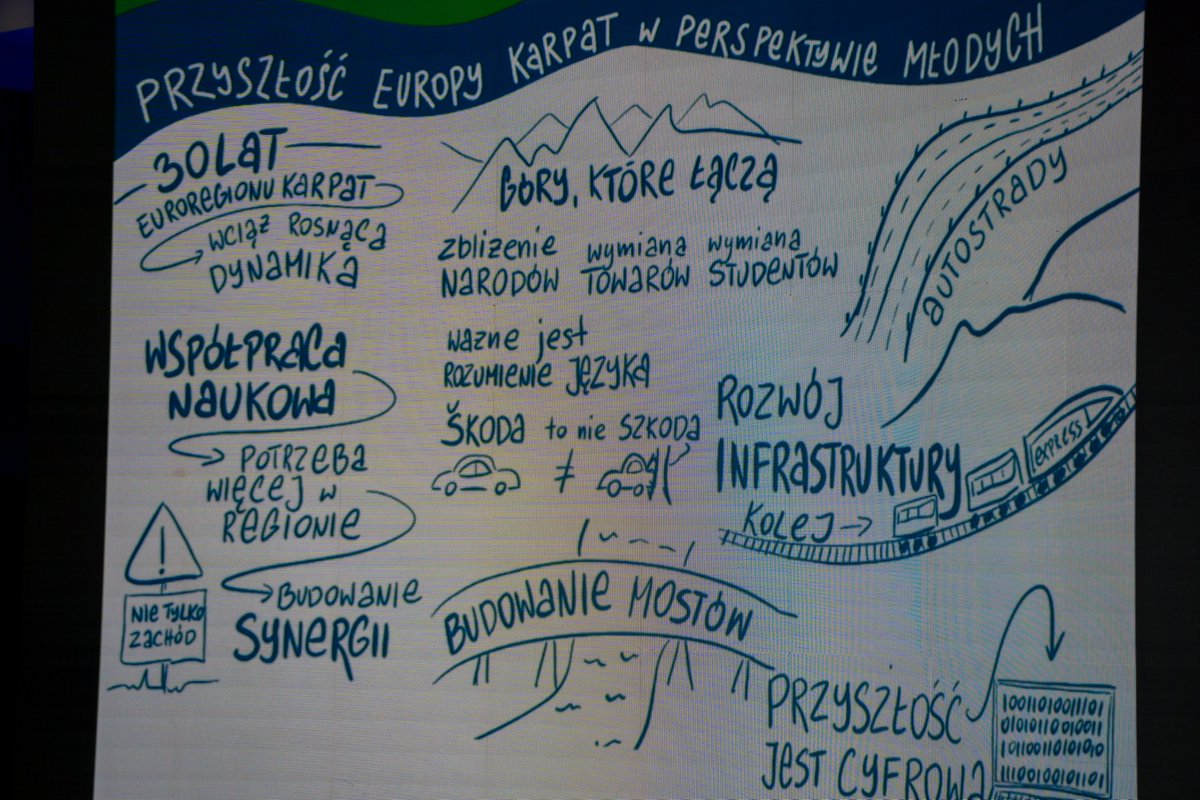 PRZYSZŁOŚĆ EUROPY KARPAT W PERSPEKTYWIE MŁODYCH
30 LAT
EUROREGIONU KARPAT
WCIĄŻ ROSNĄCA
DYNAMIKA
WSPÓŁPRACA
NAUKOWA
POTRZEBA
WIĘCEJ W
REGIONIE
!
NIE TYLKO
ZACHÓD
BUDOWANIE
SYNERGII
GÓRY, KTÓRE ŁĄCZĄ
zbliżenie
NARODÓW
wymiana
TOWARÓW
wymiana
STUDENTÓW
ważne jest
ROZUMIENIE JĘZYKA
ŠKODA to nie SZKODA
≠
BUDOWANIE MOSTÓW
AUTOSTRADY
ROZWÓJ
INFRASTRUKTURY
KOLEJ
EXPRESS
PRZYSZŁOŚĆ
JEST CYFROWA